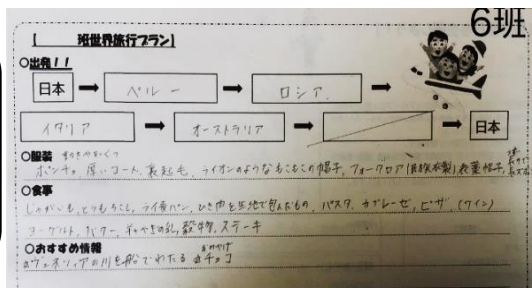 6班
【 班世界旅行プラン】
○出発！！
日本 → ペルー → ロシア
イタリア → オーストラリア → → 日本
○服装
ポンチョ、厚いコート、裏起毛、ライオンのようなもこもこの帽子、フォークロア
○食事
じゃがいも、とうもろこし、ライ麦パン、ひき肉を生地で包んだもの、パスタ、カプレーゼ、ピザ、(ワイン)
ヨーグルト、バター、 穀物、ステーキ
○おすすめ情報
ヴェネツィアの川を船でわたる チョコ